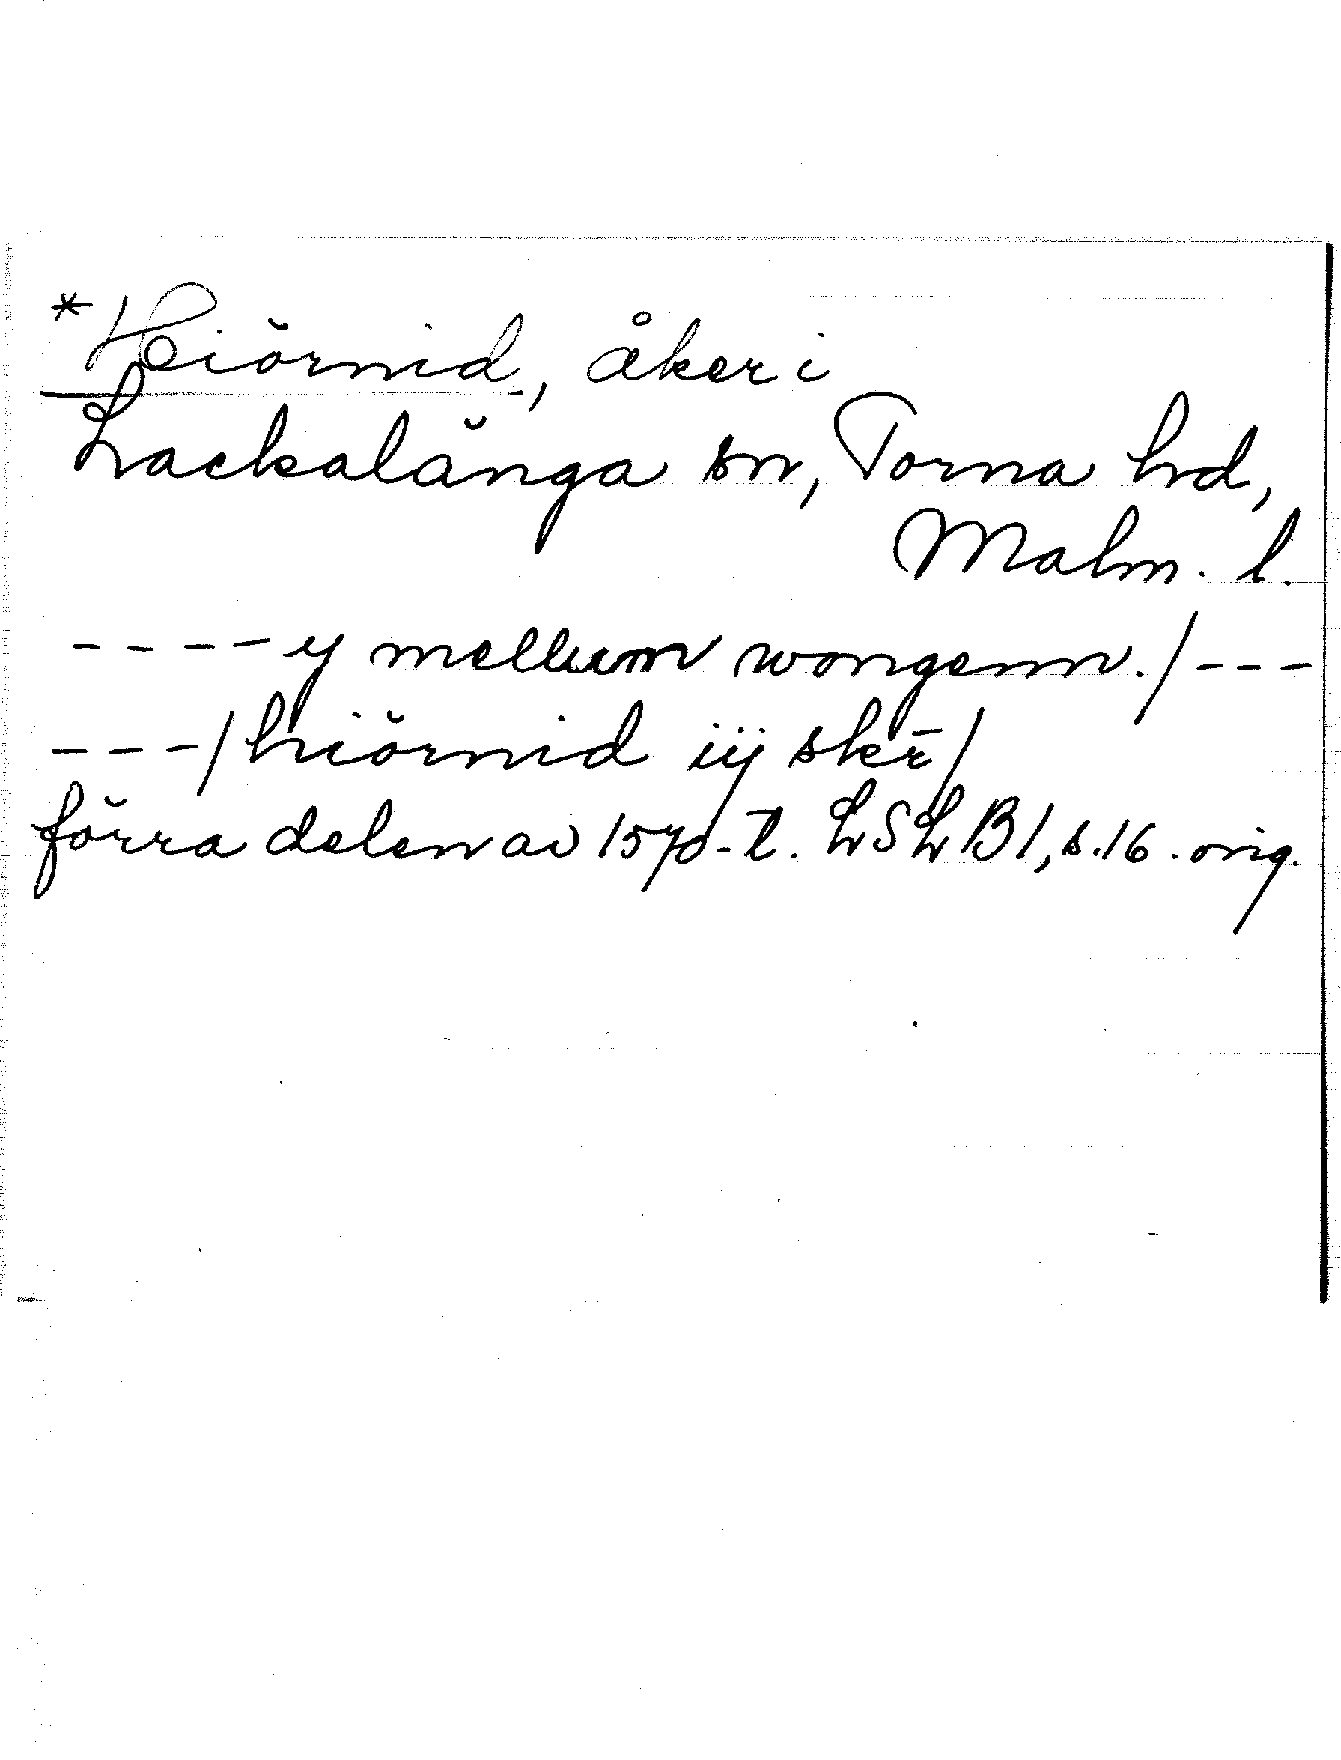 *Hiörnid, åker i
Lackalänga sn, Torna hd,
Malm. l.
---- y mellum wongenn./---
---/hiörnid iij skr̄/
förra delen av 1570-t. LSLB1, s.16. orig.